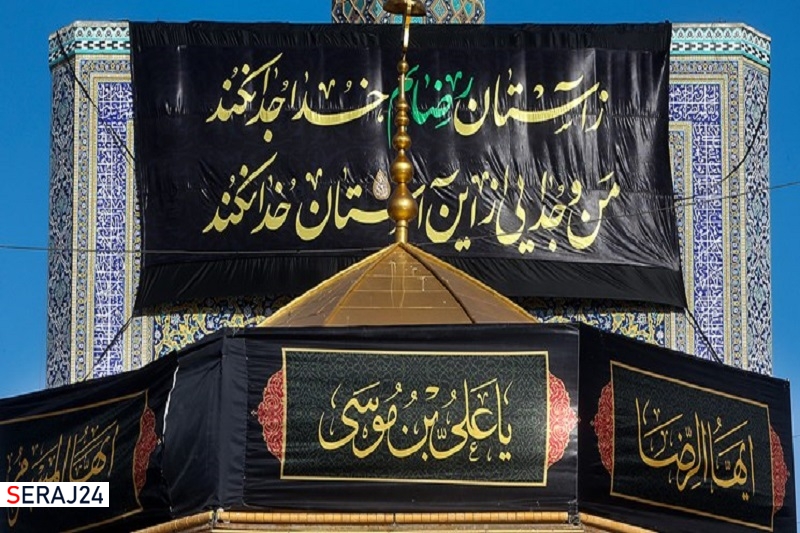 ز آستان رضایم خدا جدا نکند
من و جدایی از این آستان خدا نکند
یا علی بن موسی
ایها الرضا
ایها
SERAJ24